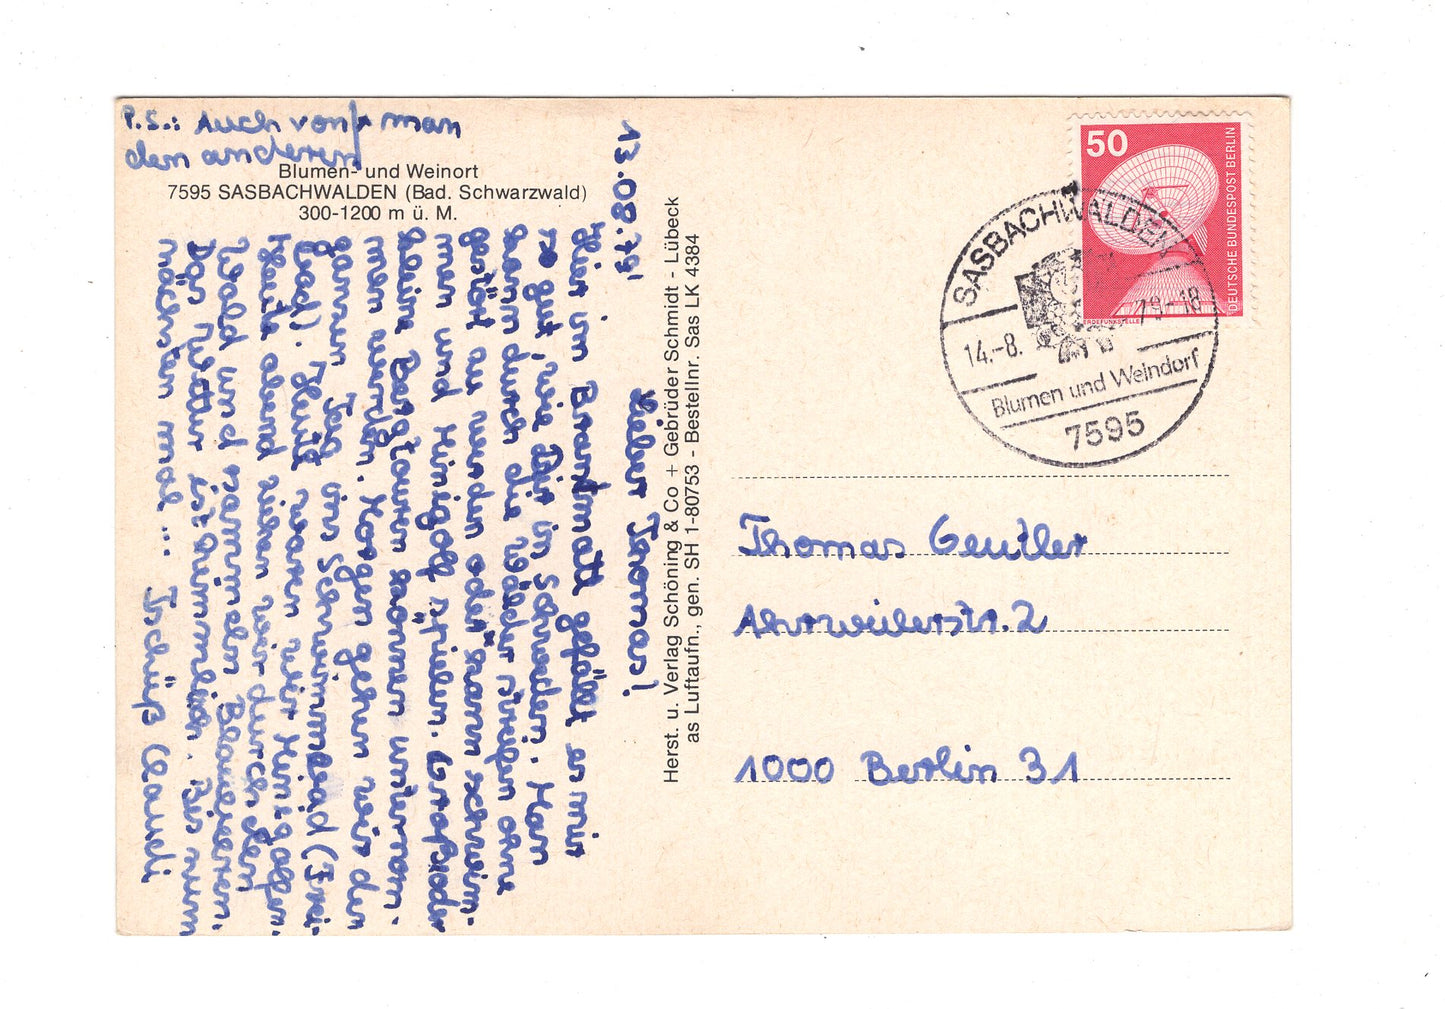 P.S.: Auch von man
den anderen
Blumen- und Weinort
7595 SASBACHWALDEN (Bad. Schwarzwald)
300-1200 m ü. M.
13.08.79
Lieber Thomas!
Hier im Brandmatt gefällt es mir
so gut, wie Dir in Schweden. Man
kann durch die Wälder streifen ohne
gestört zu werden oder kann schwim-
men und Minigolf spielen. Große oder
kleine Bergtouren können unternom-
men werden. Morgen gehen wir den
ganzen Tag ins Schwimmbad (Frei-
bad). Heute waren wir Minigolfen.
Heute abend ziehen wir durch den
Wald und sammeln Blaubeeren.
Das Wetter ist
nächsten mal... Tschüß Claudi
Herst. u. Verlag Schöning & Co + Gebrüder Schmidt - Lübeck
as Luftaufn., gen. SH 1-80753 - Bestellnr. Sas LK 4384
50
DEUTSCHE BUNDESPOST BERLIN
ERDEFUNKSTELLE
SASBACHWALDEN
14.-8. 79-18
Blumen und Weindorf
7595
Thomas Geutler
Ahrweilerstr. 2
1000 Berlin 31